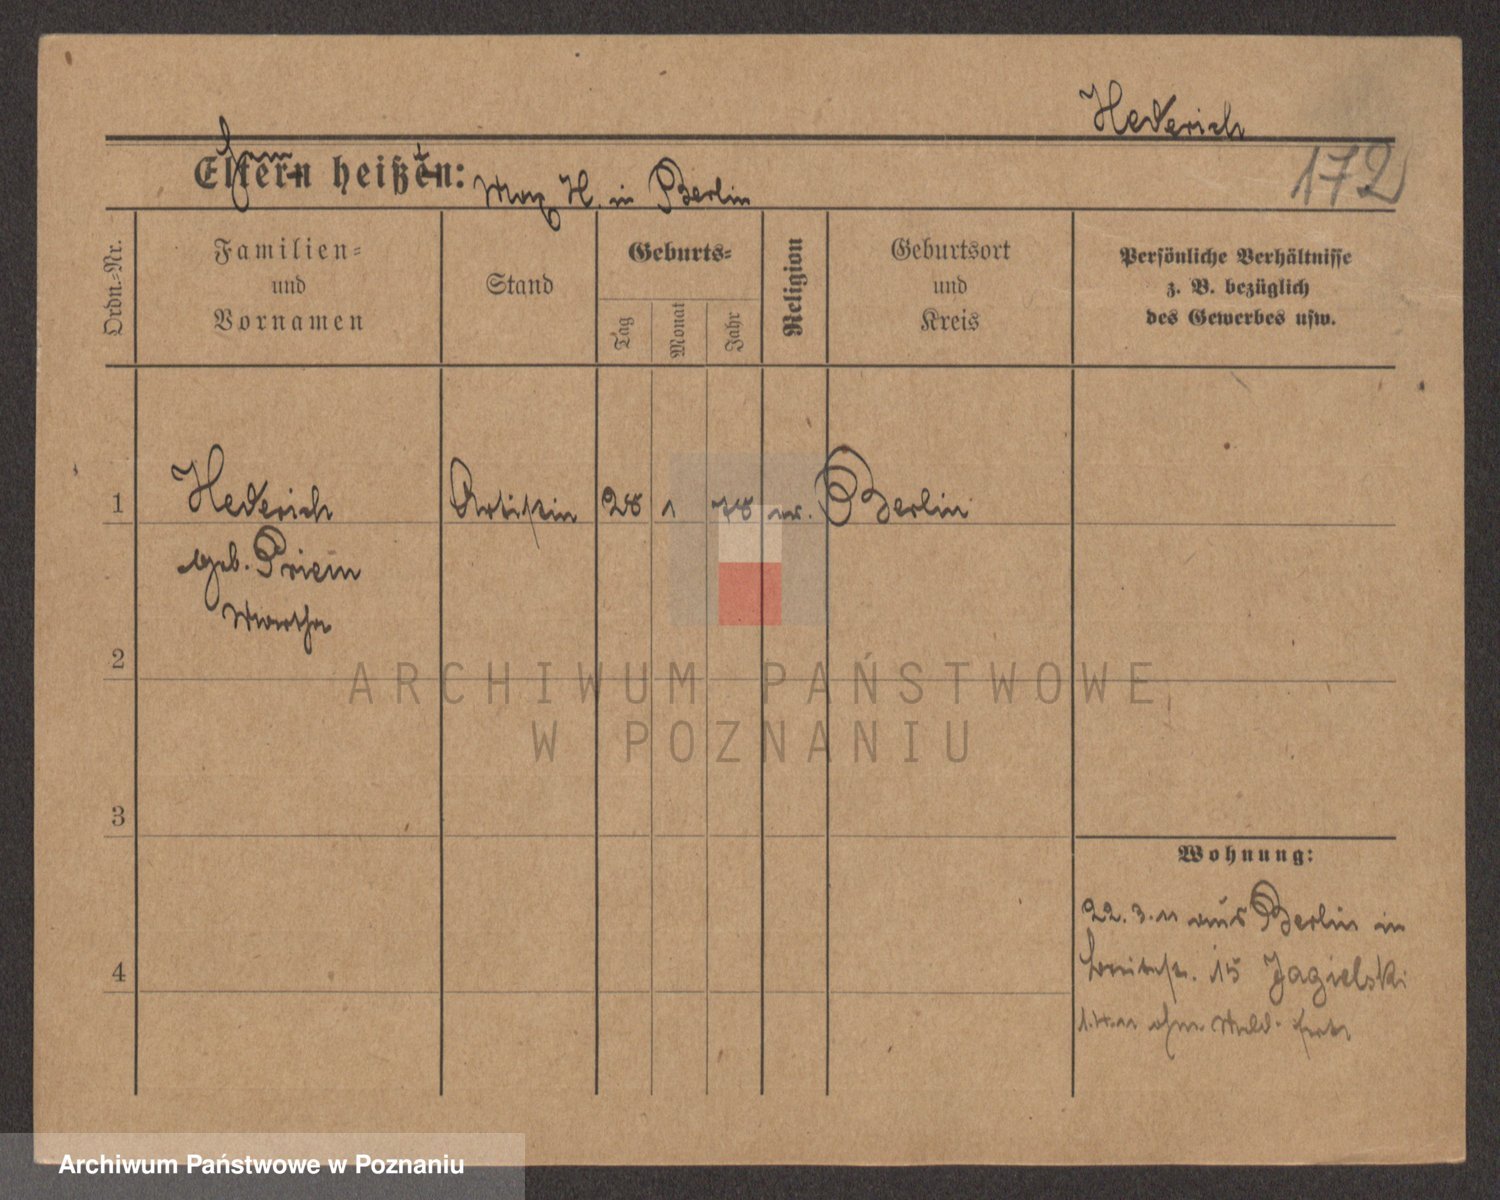 Hederich
172
Eltern heißen: Max H. in Berlin
Ordn.-Nr.
Familien-
und
Vornamen
Stand
Geburts-
Tag
Monat
Jahr
Religion
Geburtsort
und
Kreis
Persönliche Verhältnisse
z. B. bezüglich
des Gewerbes usw.
1
Hederich Artistin 28 1 78 Berlin
geb. Priem
Martha
2
3
4
Wohnung:
22.3.11 aus Berlin in
Breitestr. 15 Jagielski
1.4.11 ohne Meld. fort
ARCHIWUM PAŃSTWOWE
W POZNANIU
Archiwum Państwowe w Poznaniu